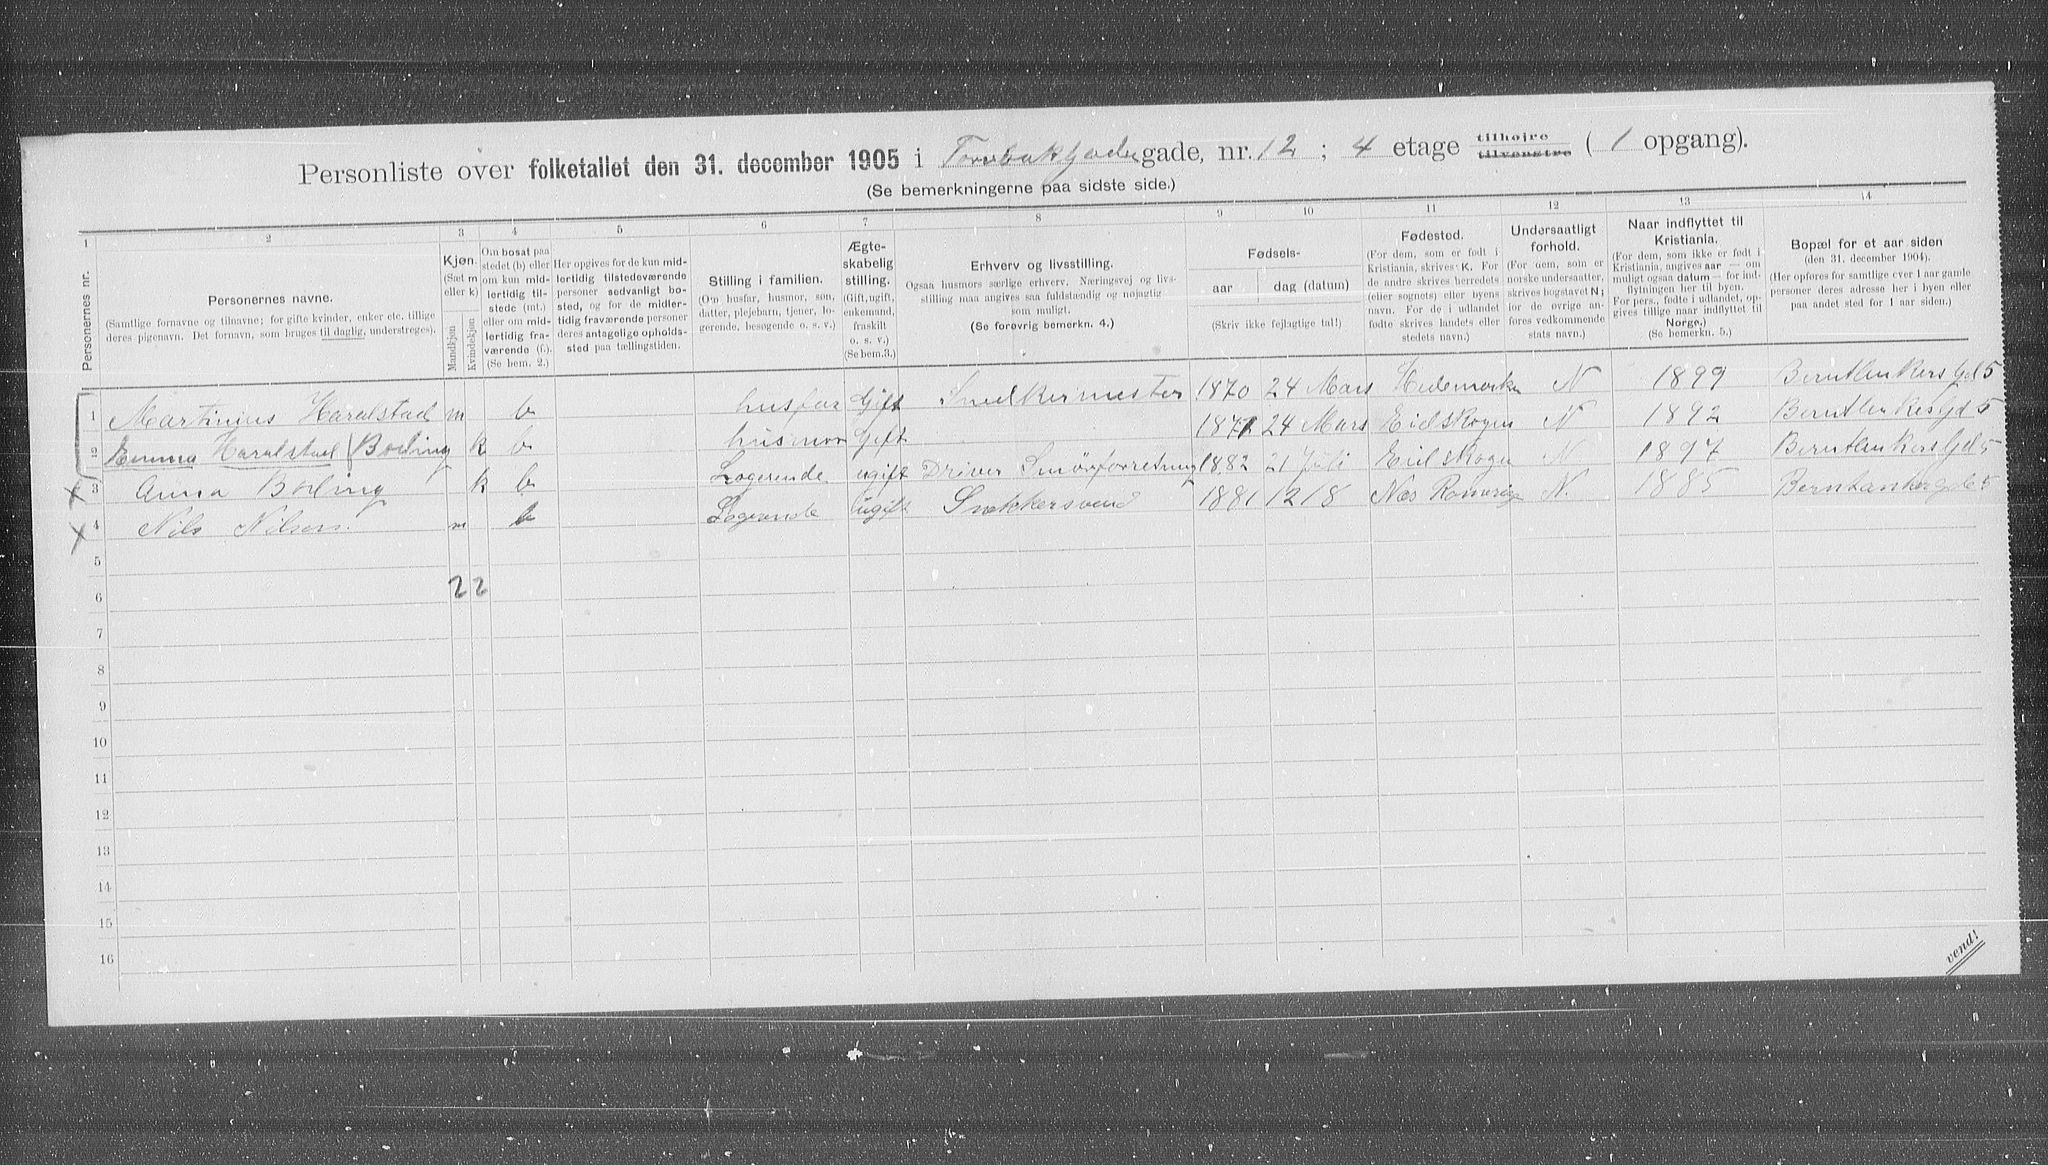 Personliste over folketallet den 31. december 1905 i Tornbakkjadegade, nr. 12 ; 4 etage tilhøire tilvenstre ( 1 opgang).
(Se bemerkningerne paa sidste side.)
1 2 3 4 5 6 7 8 9 10 11 12 13 14
Personernes nr.
Personernes navne.
(Samtlige fornavne og tilnavne; for gifte kvinder, enker etc. tillige deres pigenavn. Det fornavn, som bruges til daglig, understreges).
Kjøn.
(Sæt m eller k)
Mandkjøn
Kvindekjøn
Om bosat paa stedet (b) eller om kun midlertidig tilstede (mt.) eller om midlertidig fraværende (f.). (Se bem. 2.)
Her opgives for de kun midlertidig tilstedeværende personer sedvanligt bosted, og for de midlertidig fraværende personer deres antagelige opholdssted paa tællingstiden.
Stilling i familien.
(Om husfar, husmor, søn, datter, plejebarn, tjener, logerende, besøgende o. s. v.)
Ægteskabelig stilling.
(Gift, ugift, enkemand, fraskilt o. s. v.) (Se bem.3.)
Erhverv og livsstilling.
Ogsaa husmors særlige erhverv. Næringsvej og livsstilling maa angives saa fuldstændig og nøjagtig som muligt.
(Se forøvrig bemerkn. 4.)
Fødsels-
aar
dag (datum)
(Skriv ikke fejlagtige tal!)
Fødested.
(For dem, som er født i Kristiania, skrives K. For de andre skrives herredets (eller sognets) eller byens navn. For de i udlandet fødte skrives landets eller stedets navn.)
Undersaatligt forhold.
(For dem, som er norske undersaatter, skrives bogstavet N; for de øvrige anføres vedkommende stats navn.)
Naar indflyttet til Kristiania.
(For dem, som ikke er født i Kristiania, angives aar — om muligt ogsaa datum — for indflytningen her til byen. For pers., fødte i udlandet, opgives tillige naar indflyttet til Norge.)
(Se bemerkn. 5.)
Bopæl for et aar siden
(den 31. december 1904).
(Her opføres for samtlige over 1 aar gamle personer deres adresse her i byen eller paa andet sted for 1 aar siden.)
1 Martinius Haralstad m b husfar Gift Snedkermester 1870 24 Mars Hedemarken N 1899 Berntlenkers Gd 5
2 Emma Haralstad (Boding k b husmor Gift 1871 24 Mars Eidskogen N 1892 BerntlenkesGd 5
X 3 Anna Boding k b Logerende ugift Driver Smörforretning 1882 21 Juli Eidskogn N 1897 BerntlenkersGd 5
X 4 Nils Nilsen. m b Logerende Ugift Snekkersvend 1881 12/8 Næs Romerige N. 1885 Berntankergde 5
5
6 2 2
7
8
9
10
11
12
13
14
15
16
vend!